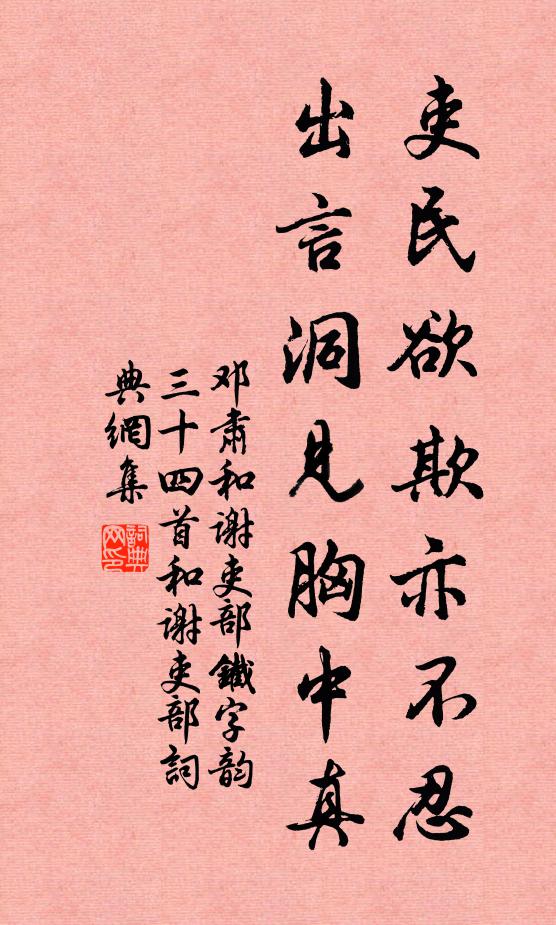 吏民欲欺亦不忍
出言洞見胸中真
邓肅和谢吏部鐵字韵
三十四首和谢吏部詞
典網集
詞典网印